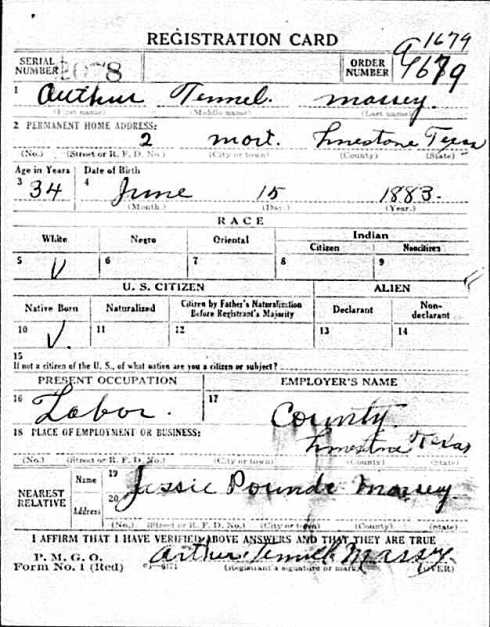 REGISTRATION CARD
SERIAL NUMBER 2078 ORDER NUMBER
A1679
1 Arthur Tennel. Massey.
(First name) (Middle name) (Last name)
2 PERMANENT HOME ADDRESS:
2 mort. Limestone Texas
(No.) (Street or R. F. D. No.) (City or town) (County) (State)
Age in Years Date of Birth
3 34 4 June 15 1883.
(Month.) (Day.) (Year.)
RACE
White Negro Oriental Indian
Citizen Noncitizen
5 V 6 7 8 9
U. S. CITIZEN ALIEN
Native Born Naturalized Citizen by Father's Naturalization Before Registrant's Majority Declarant Non-declarant
10 V. 11 12 13 14
15
If not a citizen of the U. S., of what nation are you a citizen or subject?
PRESENT OCCUPATION EMPLOYER'S NAME
16 Labor. 17 County.
18 PLACE OF EMPLOYMENT OR BUSINESS:
Limestone Texas
(No.) (Street or R. F. D. No.) (City or town) (County) (State)
NEAREST RELATIVE Name 19 Jessie Pounds Massey.
Address 20
(No.) (Street or R. F. D. No.) (City or town) (County) (State)
I AFFIRM THAT I HAVE VERIFIED ABOVE ANSWERS AND THAT THEY ARE TRUE
P. M. G. O. Arthur Massey.
Form No. 1 (Red) (Registrant's signature or mark) (OVER)